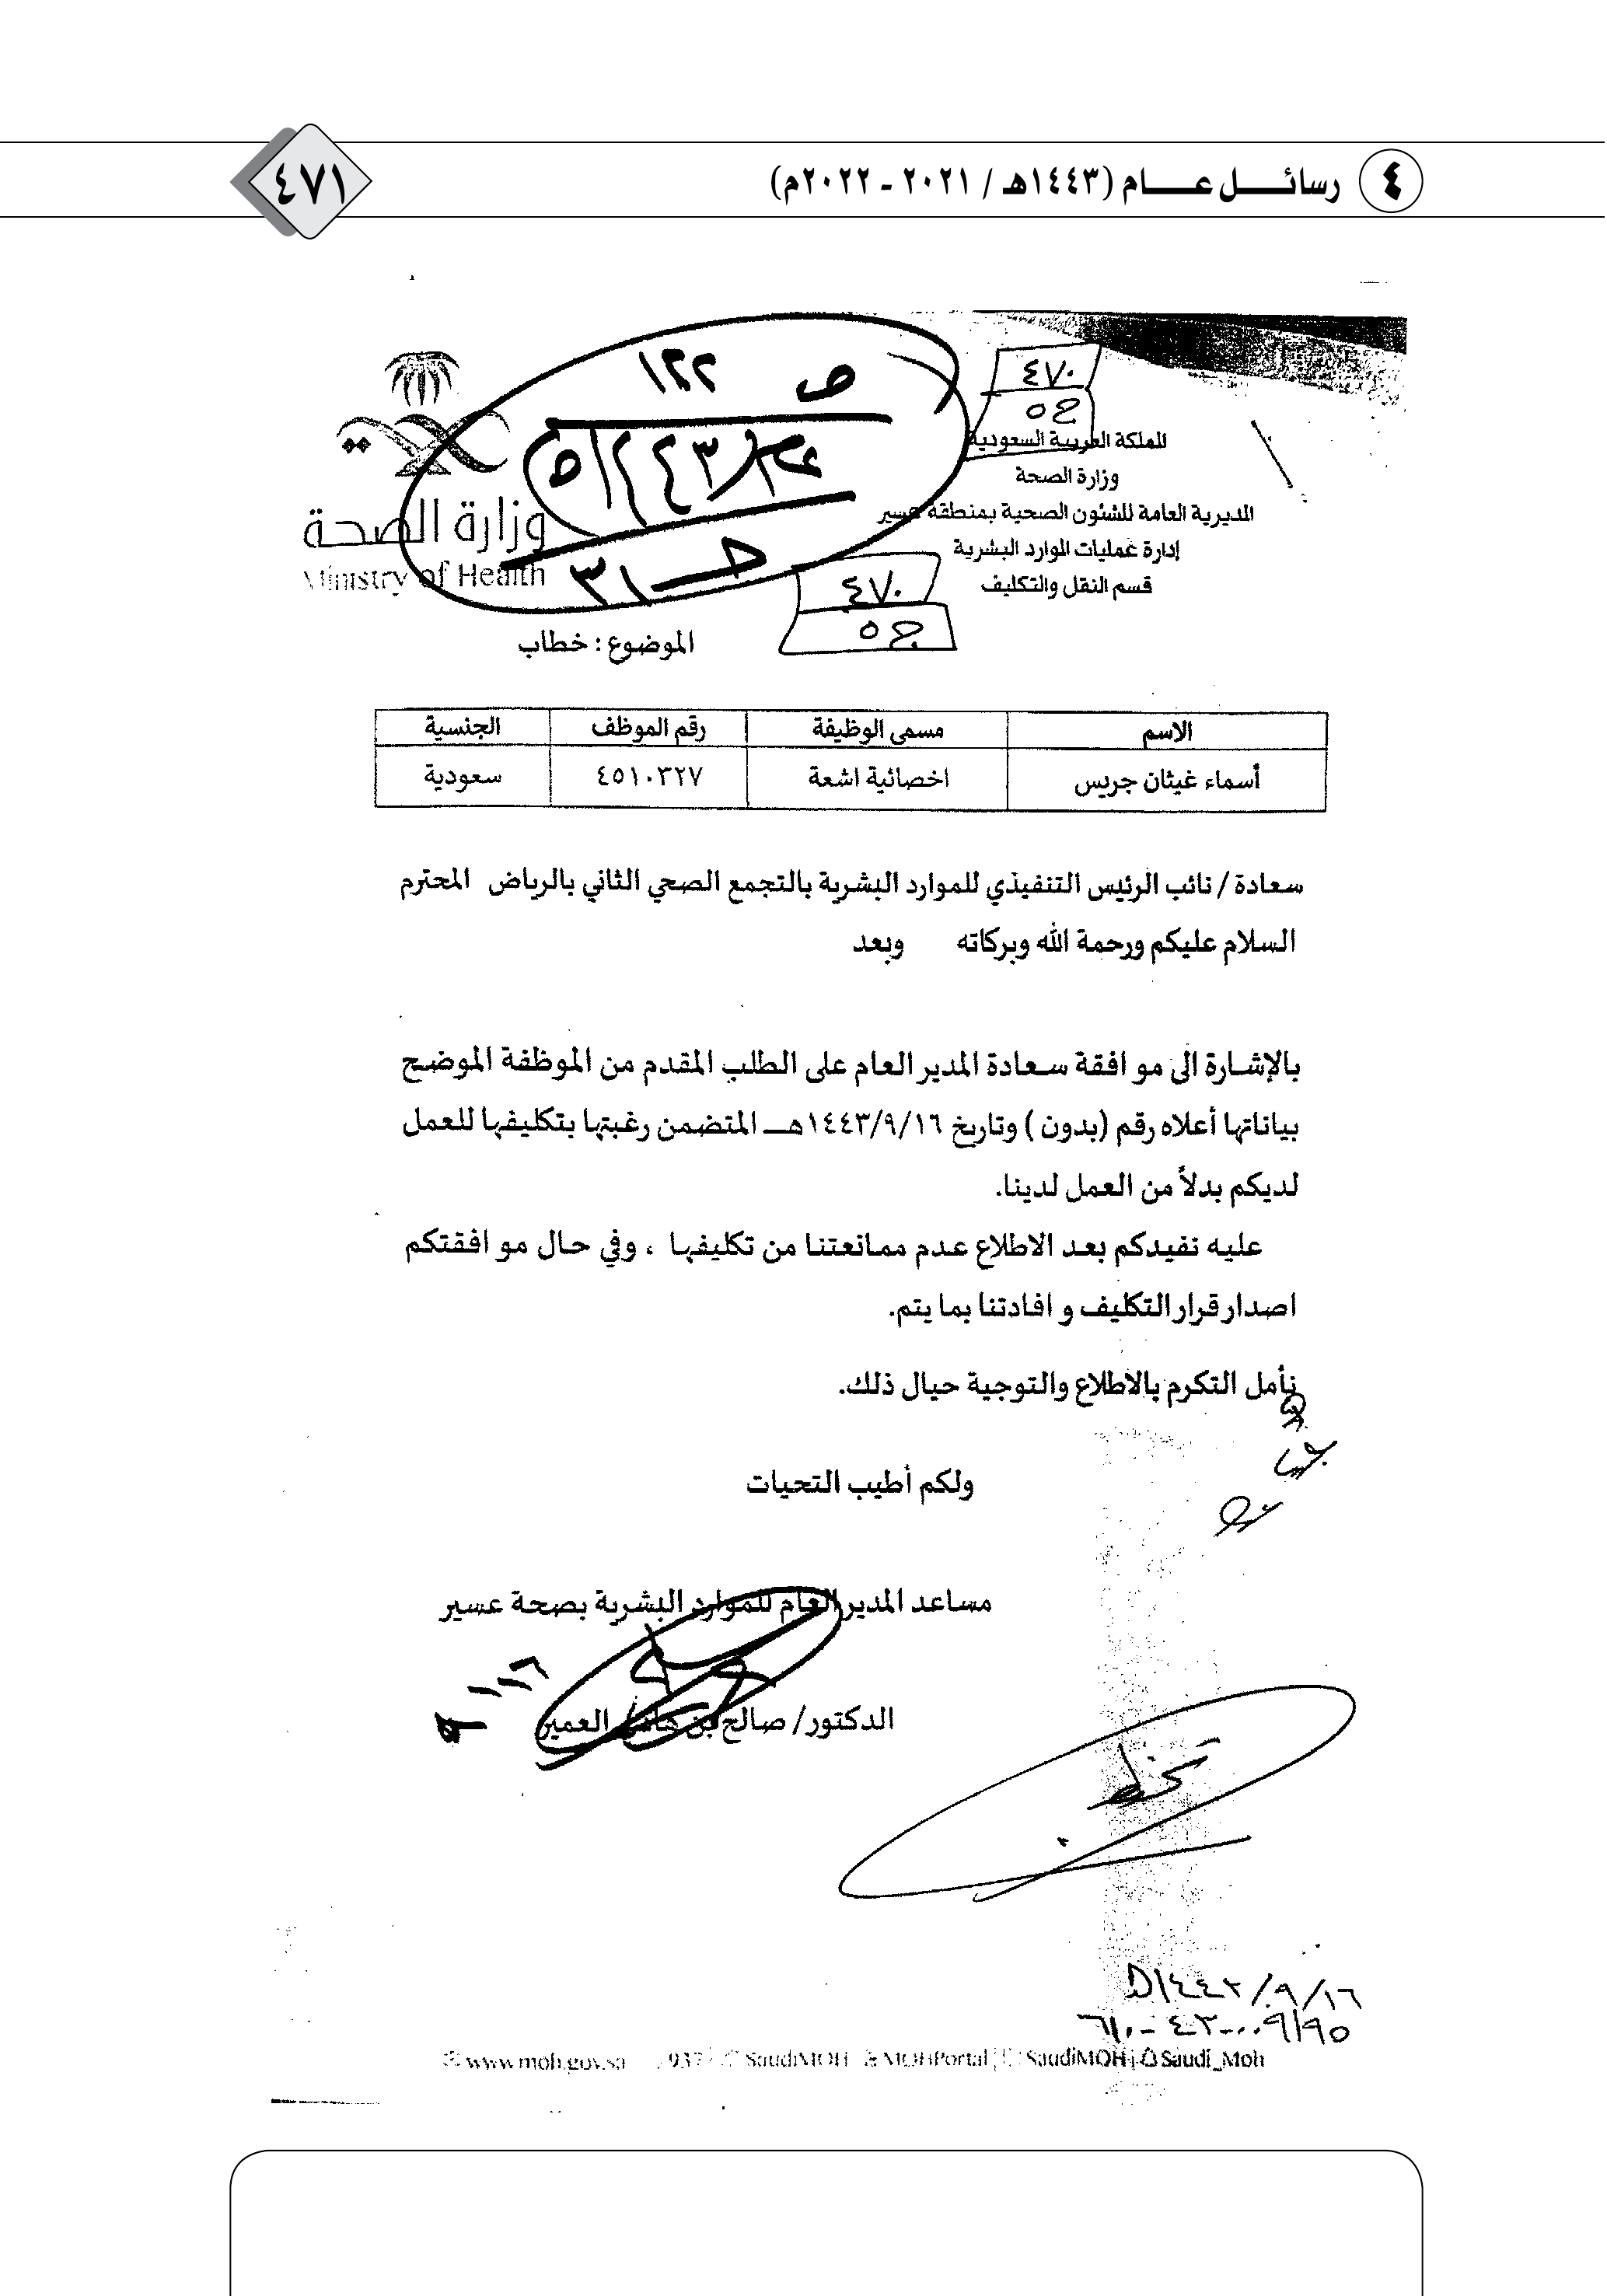 ٤ رسائل عام (١٤٤٣هـ / ٢٠٢١ - ٢٠٢٢م) ٤٧١
٤٧٠
ج٥
ص ١٢٢
ج ٣١
المملكة العربية السعودية
وزارة الصحة
المديرية العامة للشئون الصحية بمنطقة عسير
إدارة عمليات الموارد البشرية
قسم النقل والتكليف
وزارة الصحة
Ministry of Health
٤٧٠
ج٥
الموضوع : خطاب
الاسم مسمى الوظيفة رقم الموظف الجنسية
أسماء غيثان جريس اخصائية اشعة ٤٥١٠٣٢٧ سعودية
سعادة / نائب الرئيس التنفيذي للموارد البشرية بالتجمع الصحي الثاني بالرياض المحترم
السلام عليكم ورحمة الله وبركاته وبعد
بالإشارة الى مو افقة سعادة المدير العام على الطلب المقدم من الموظفة الموضح
بياناتها أعلاه رقم (بدون ) وتاريخ ١٤٤٣/٩/١٦هـ المتضمن رغبتها بتكليفها للعمل
لديكم بدلاً من العمل لدينا.
عليه نفيدكم بعد الاطلاع عدم ممانعتنا من تكليفها ، وفي حال مو افقتكم
اصدار قرار التكليف و افادتنا بما يتم.
نأمل التكرم بالاطلاع والتوجية حيال ذلك.
ولكم أطيب التحيات
مساعد المدير العام للموارد البشرية بصحة عسير
الدكتور/ صالح بن العمير
١٤٤٣/٩/١٦
www.moh.gov.sa 937 SaudiMOH MOHPortal SaudiMOH Saudi_Moh